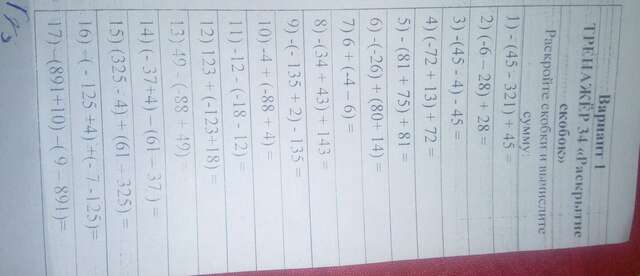 Вариант 1
ТРЕНАЖЁР 34 «Раскрытие
скобок»
Раскройте скобки и вычислите
сумму:
1) - (45 - 331) + 45 =
2) (-6 – 28) + 28 =
3) -(45 - 4) - 45 =
4) (-72 + 13) + 72 =
5) - (81 + 75) + 81 =
6) -(-26) + (80+ 14) =
7) 6 + (-4 – 6) =
8) -(34 + 43) + 143 =
9) -(- 135 + 2) - 135 =
10) -4 + (-88 + 4) =
11) -12 - (-18 - 12) =
12) 123 + (-123+18) =
13) 49 - (-88 + 49) =
14) (- 37+4) - (61 - 37) =
15) (325 - 4) + (61 - 325) =
16) –( - 125 +4) +(- 7 -125)=
17) –(891+10) –( 9 – 891)=